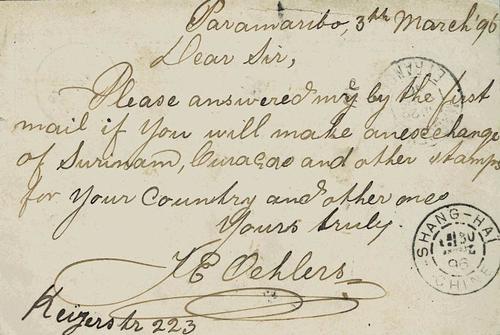 Paramaribo, 3th March '96
Dear Sir,
Please answered my by the first
mail if you will make an exchange
of Surinam, Curaçao and other stamps
for your country and other ones
Yours truly.
Oehlers
Keizerstr 223
SHANG-HAI
30
96
CHINE